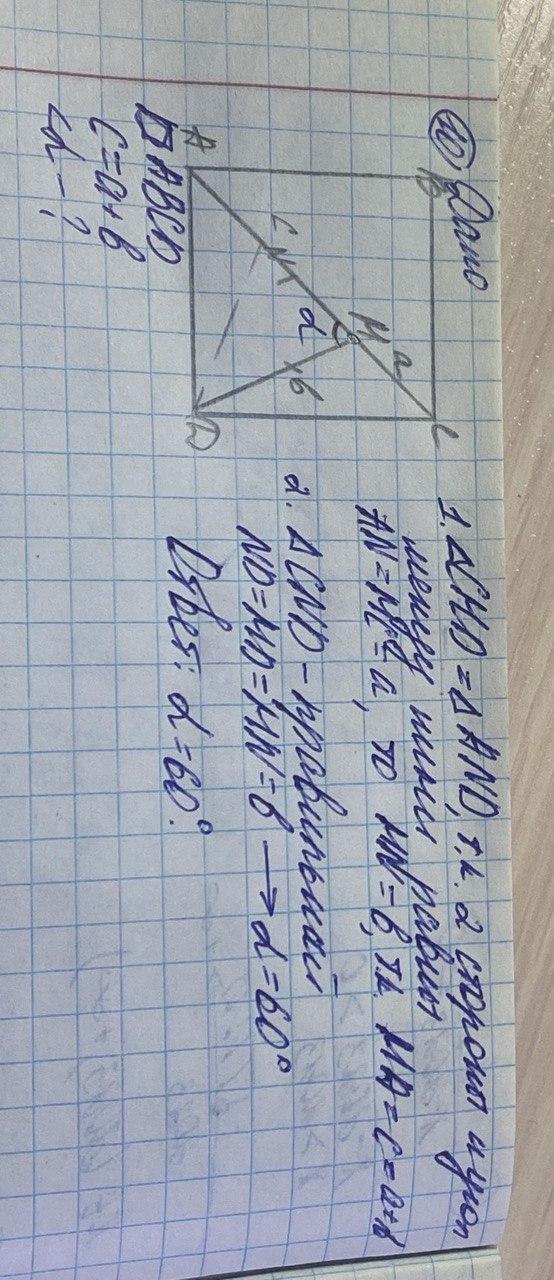 ⑩ Дано
B
C
a
M
α
b
N
c
A
D
□ ABCD
c=a+b
∠α-?
1. ΔCMD = ΔAND, т.к. 2 стороны и угол
между ними равны
AN=MC=a, то MN=b, т.к. MA=c=a+b
2. ΔMND - правильный
ND=MD=MN=b → α=60°
Ответ: α=60°.